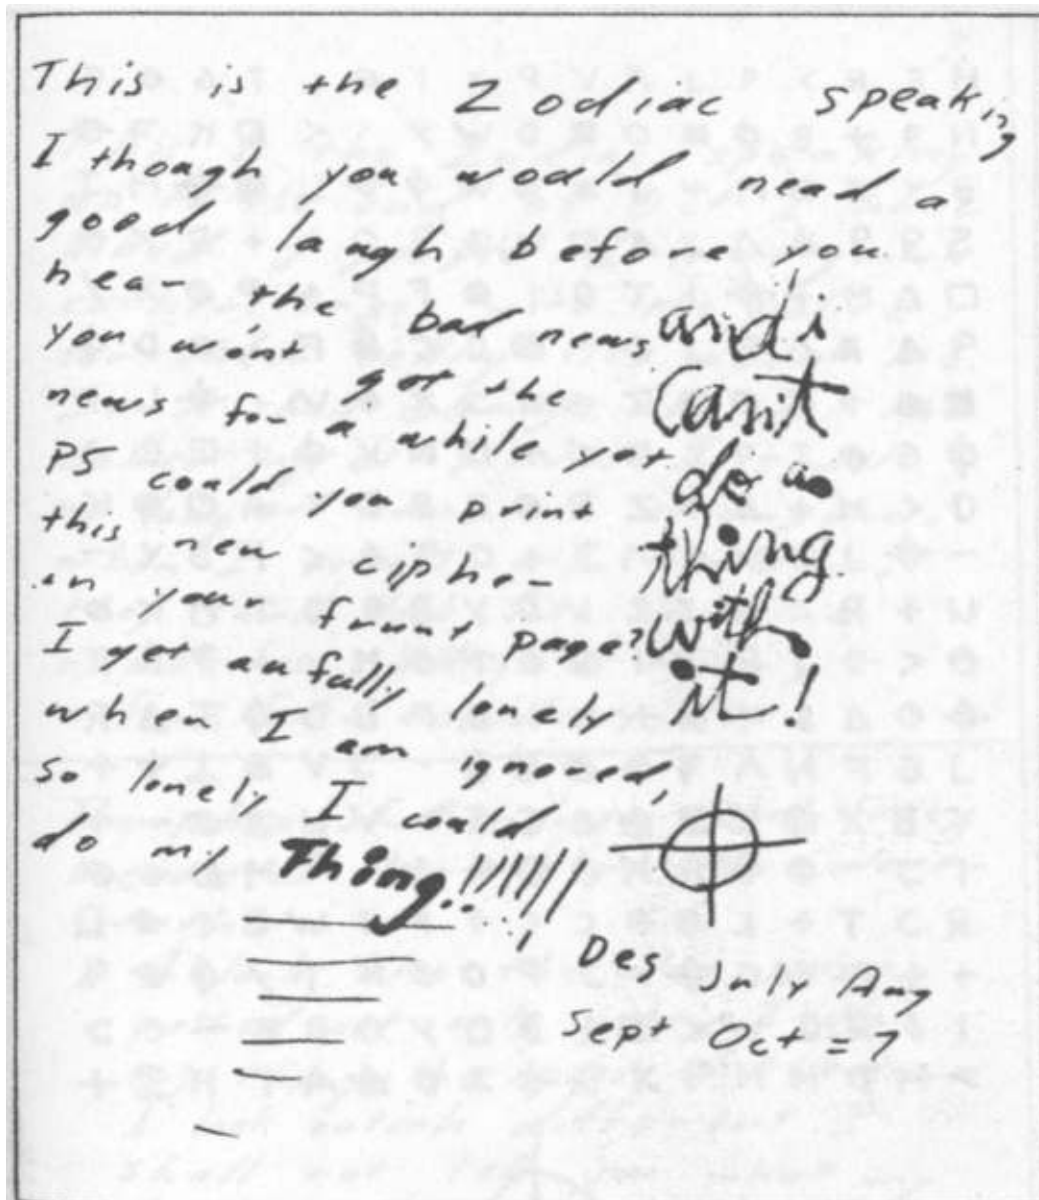 This is the Zodiac speaking
I though you would nead a
good laugh before you
hear the bad news
you won't get the
news for a while yet
PS could you print
this new cipher
on your frunt page?
I get aufully lonely
when I am ignored,
so lonely I could
do my Thing!!!!!!
and i
Can't
do a
thing
with
it!
Des July Aug
Sept Oct = 7